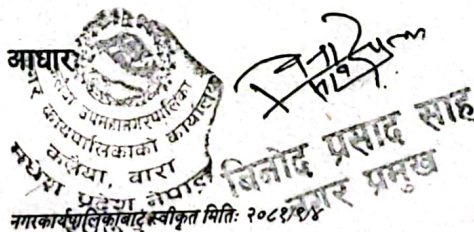 आधारः
उपमहानगरपालिका
नगर कार्यपालिकाको कार्यालय
कलैया, बारा
मधेश प्रदेश नेपाल
बिनोद प्रसाद साह
नगर प्रमुख
नगरकार्यपालिकाबाट स्वीकृत मितिः २०८१/९/४